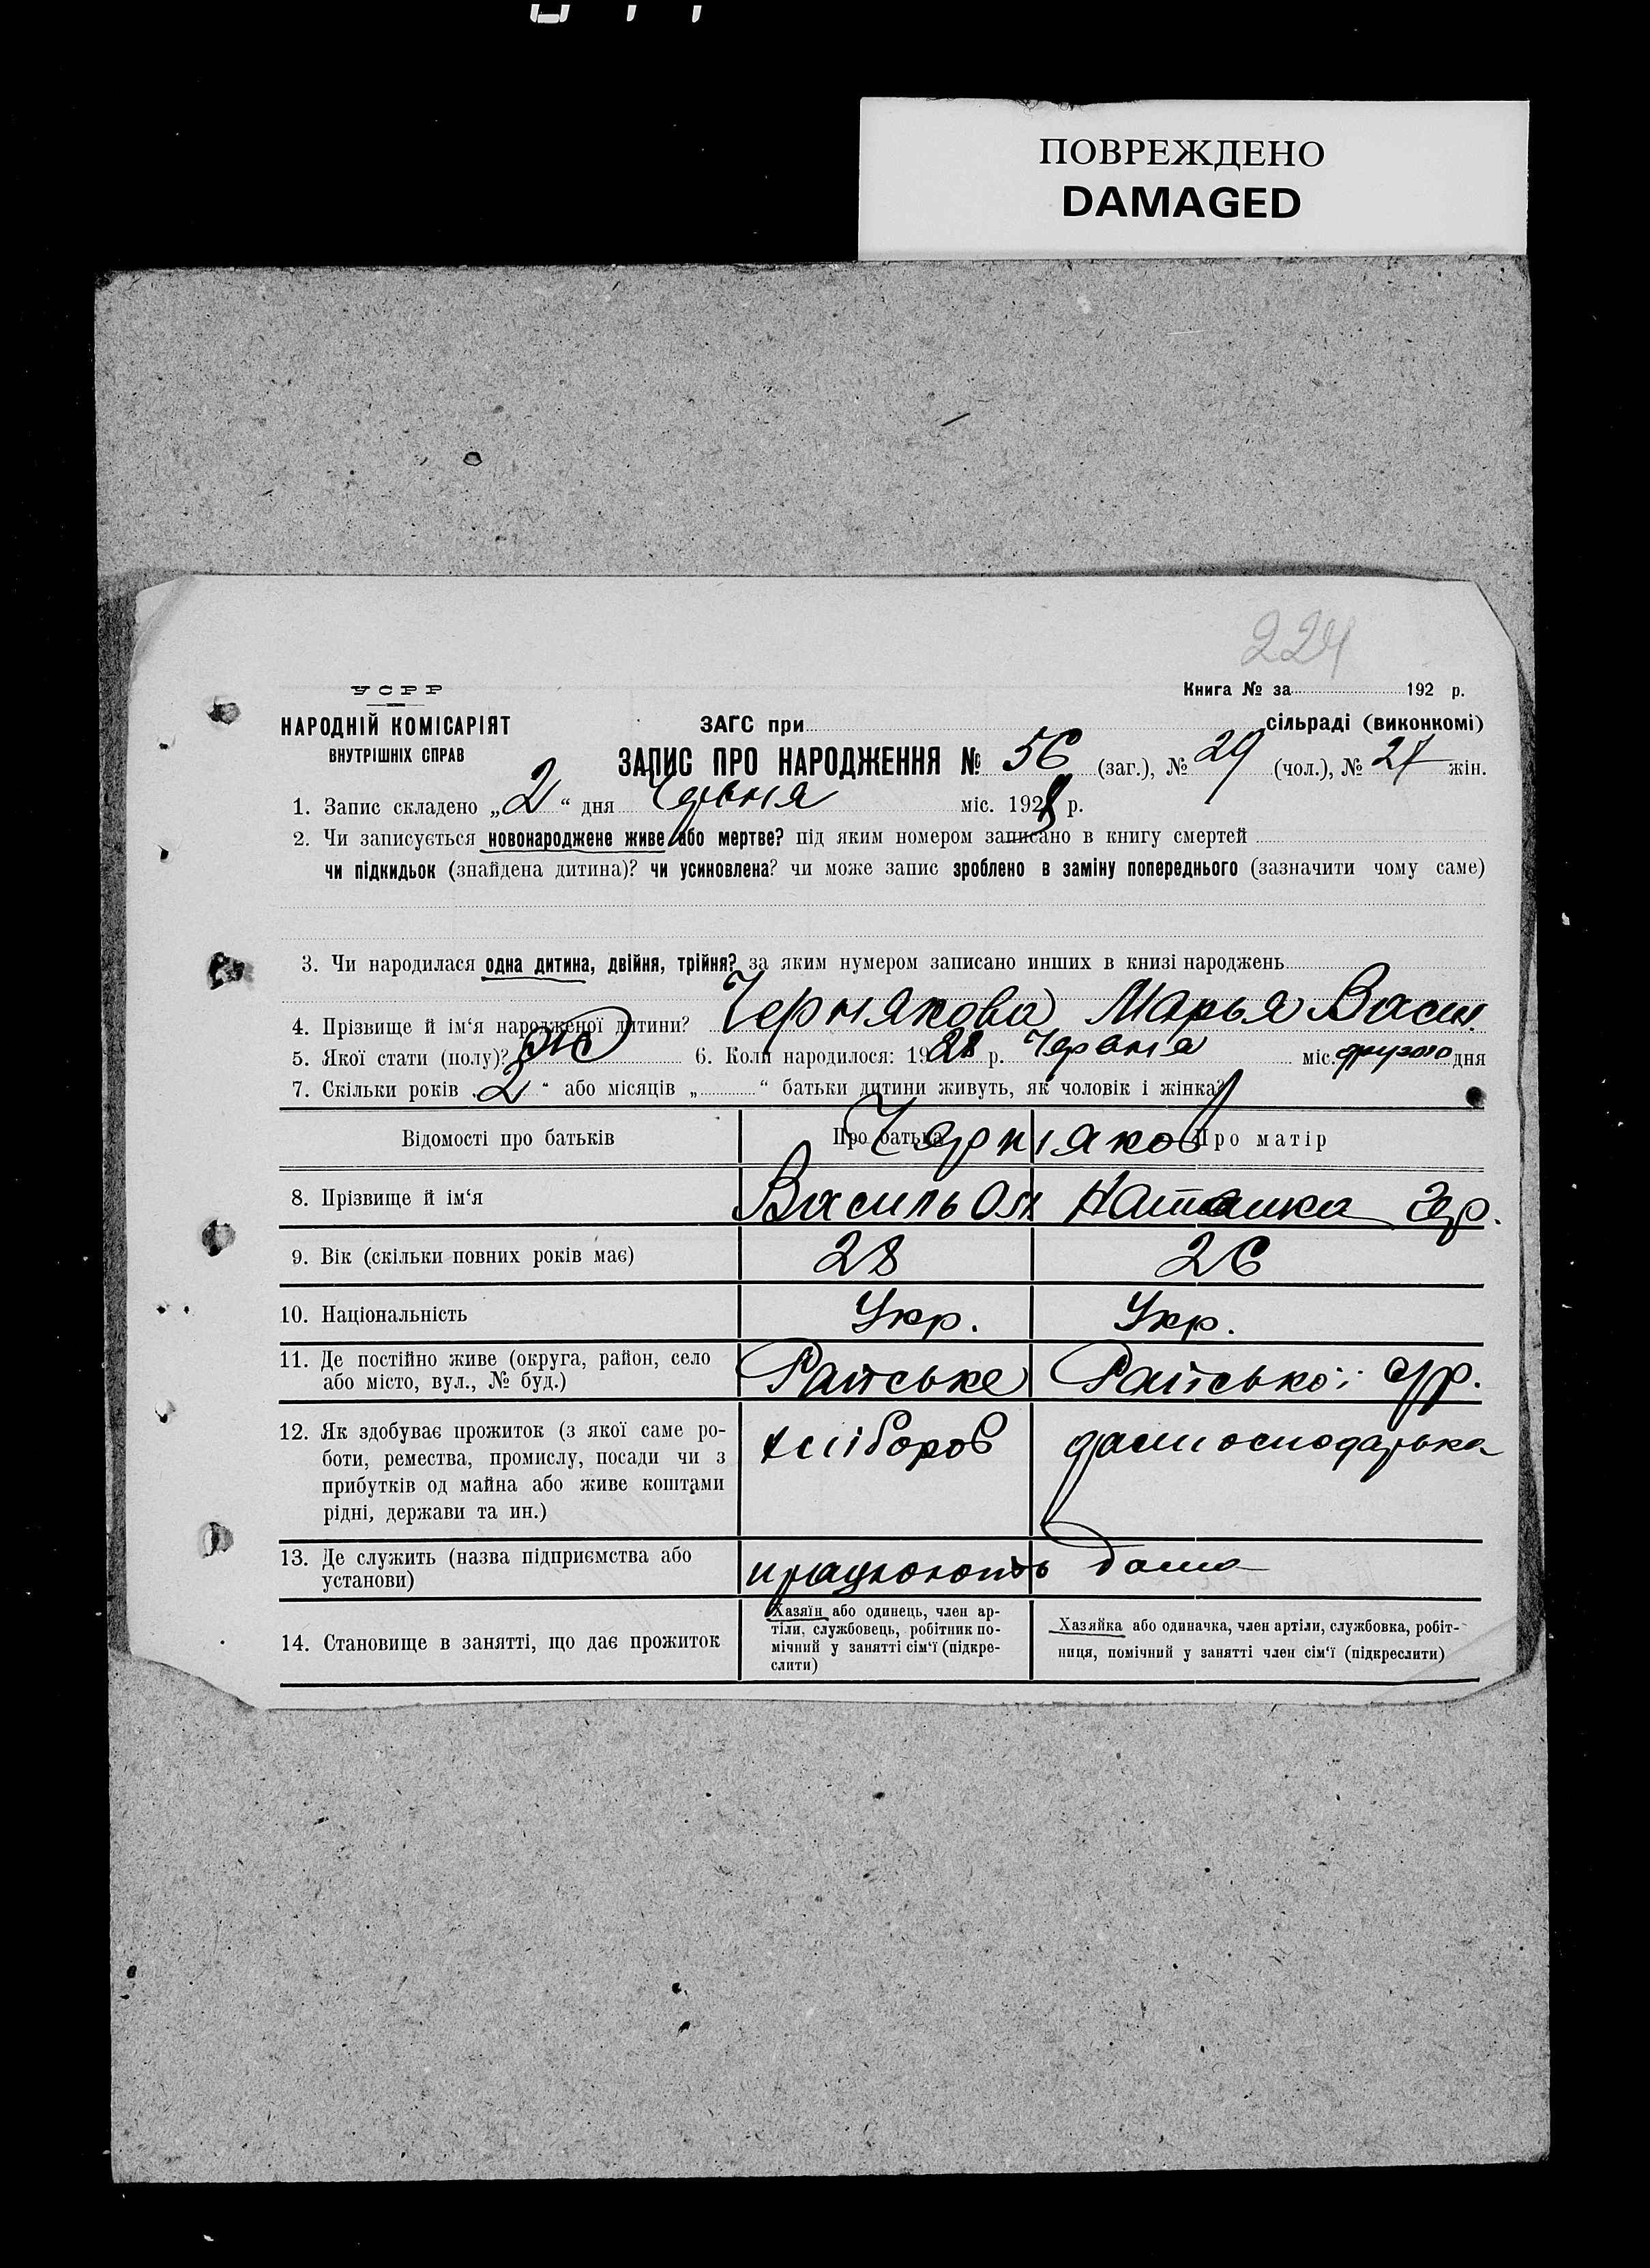 ПОВРЕЖДЕНО
DAMAGED
224
УСРР
НАРОДНІЙ КОМІСАРІЯТ
ВНУТРІШНІХ СПРАВ
Книга № за 192 р.
ЗАГС при сільраді (виконкомі)
ЗАПИС ПРО НАРОДЖЕННЯ № 56 (заг.), № 29 (чол.), № 27 жін.
1. Запис складено „2“ дня Червня міс. 1928 р.
2. Чи записується новонароджене живе або мертве? під яким номером записано в книгу смертей
чи підкидьок (знайдена дитина)? чи усиновлена? чи може запис зроблено в заміну попереднього (зазначити чому саме)
3. Чи народилася одна дитина, двійня, трійня? за яким нумером записано инших в книзі народжень
4. Прізвище й ім‘я народженої дитини? Чернякова Марья Васил.
5. Якої стати (полу)? Ж 6. Коли народилося: 1928 р. Червня міс. другого дня
7. Скільки років „2“ або місяців „ “ батьки дитини живуть, як чоловік і жінка?
Відомості про батьків Про батька Про матір
Черняков
8. Прізвище й ім‘я Василь Ол Наталка Гр.
9. Вік (скільки повних років має) 28 26
10. Національність Укр. Укр.
11. Де постійно живе (округа, район, село або місто, вул., № буд.) Райське Райської с/р.
12. Як здобуває прожиток (з якої саме роботи, ремества, промислу, посади чи з
прибутків од майна або живе коштами
рідні, держави та ин.) хлібороб домогосподарька
13. Де служить (назва підприємства або установи) працюють дома
14. Становище в занятті, що дає прожиток
Хазяїн або одинець, член артіли, службовець, робітник помічний у занятті сім‘ї (підкреслити)
Хазяйка або одиначка, член артіли, службовка, робітниця, помічний у занятті член сім‘ї (підкреслити)